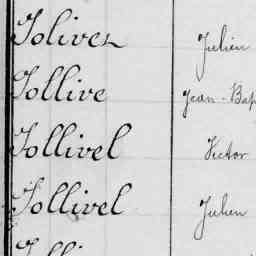 Jolivel Julien
Jollive Jean-Bap
Jollivel Victor
Jollivel Julien